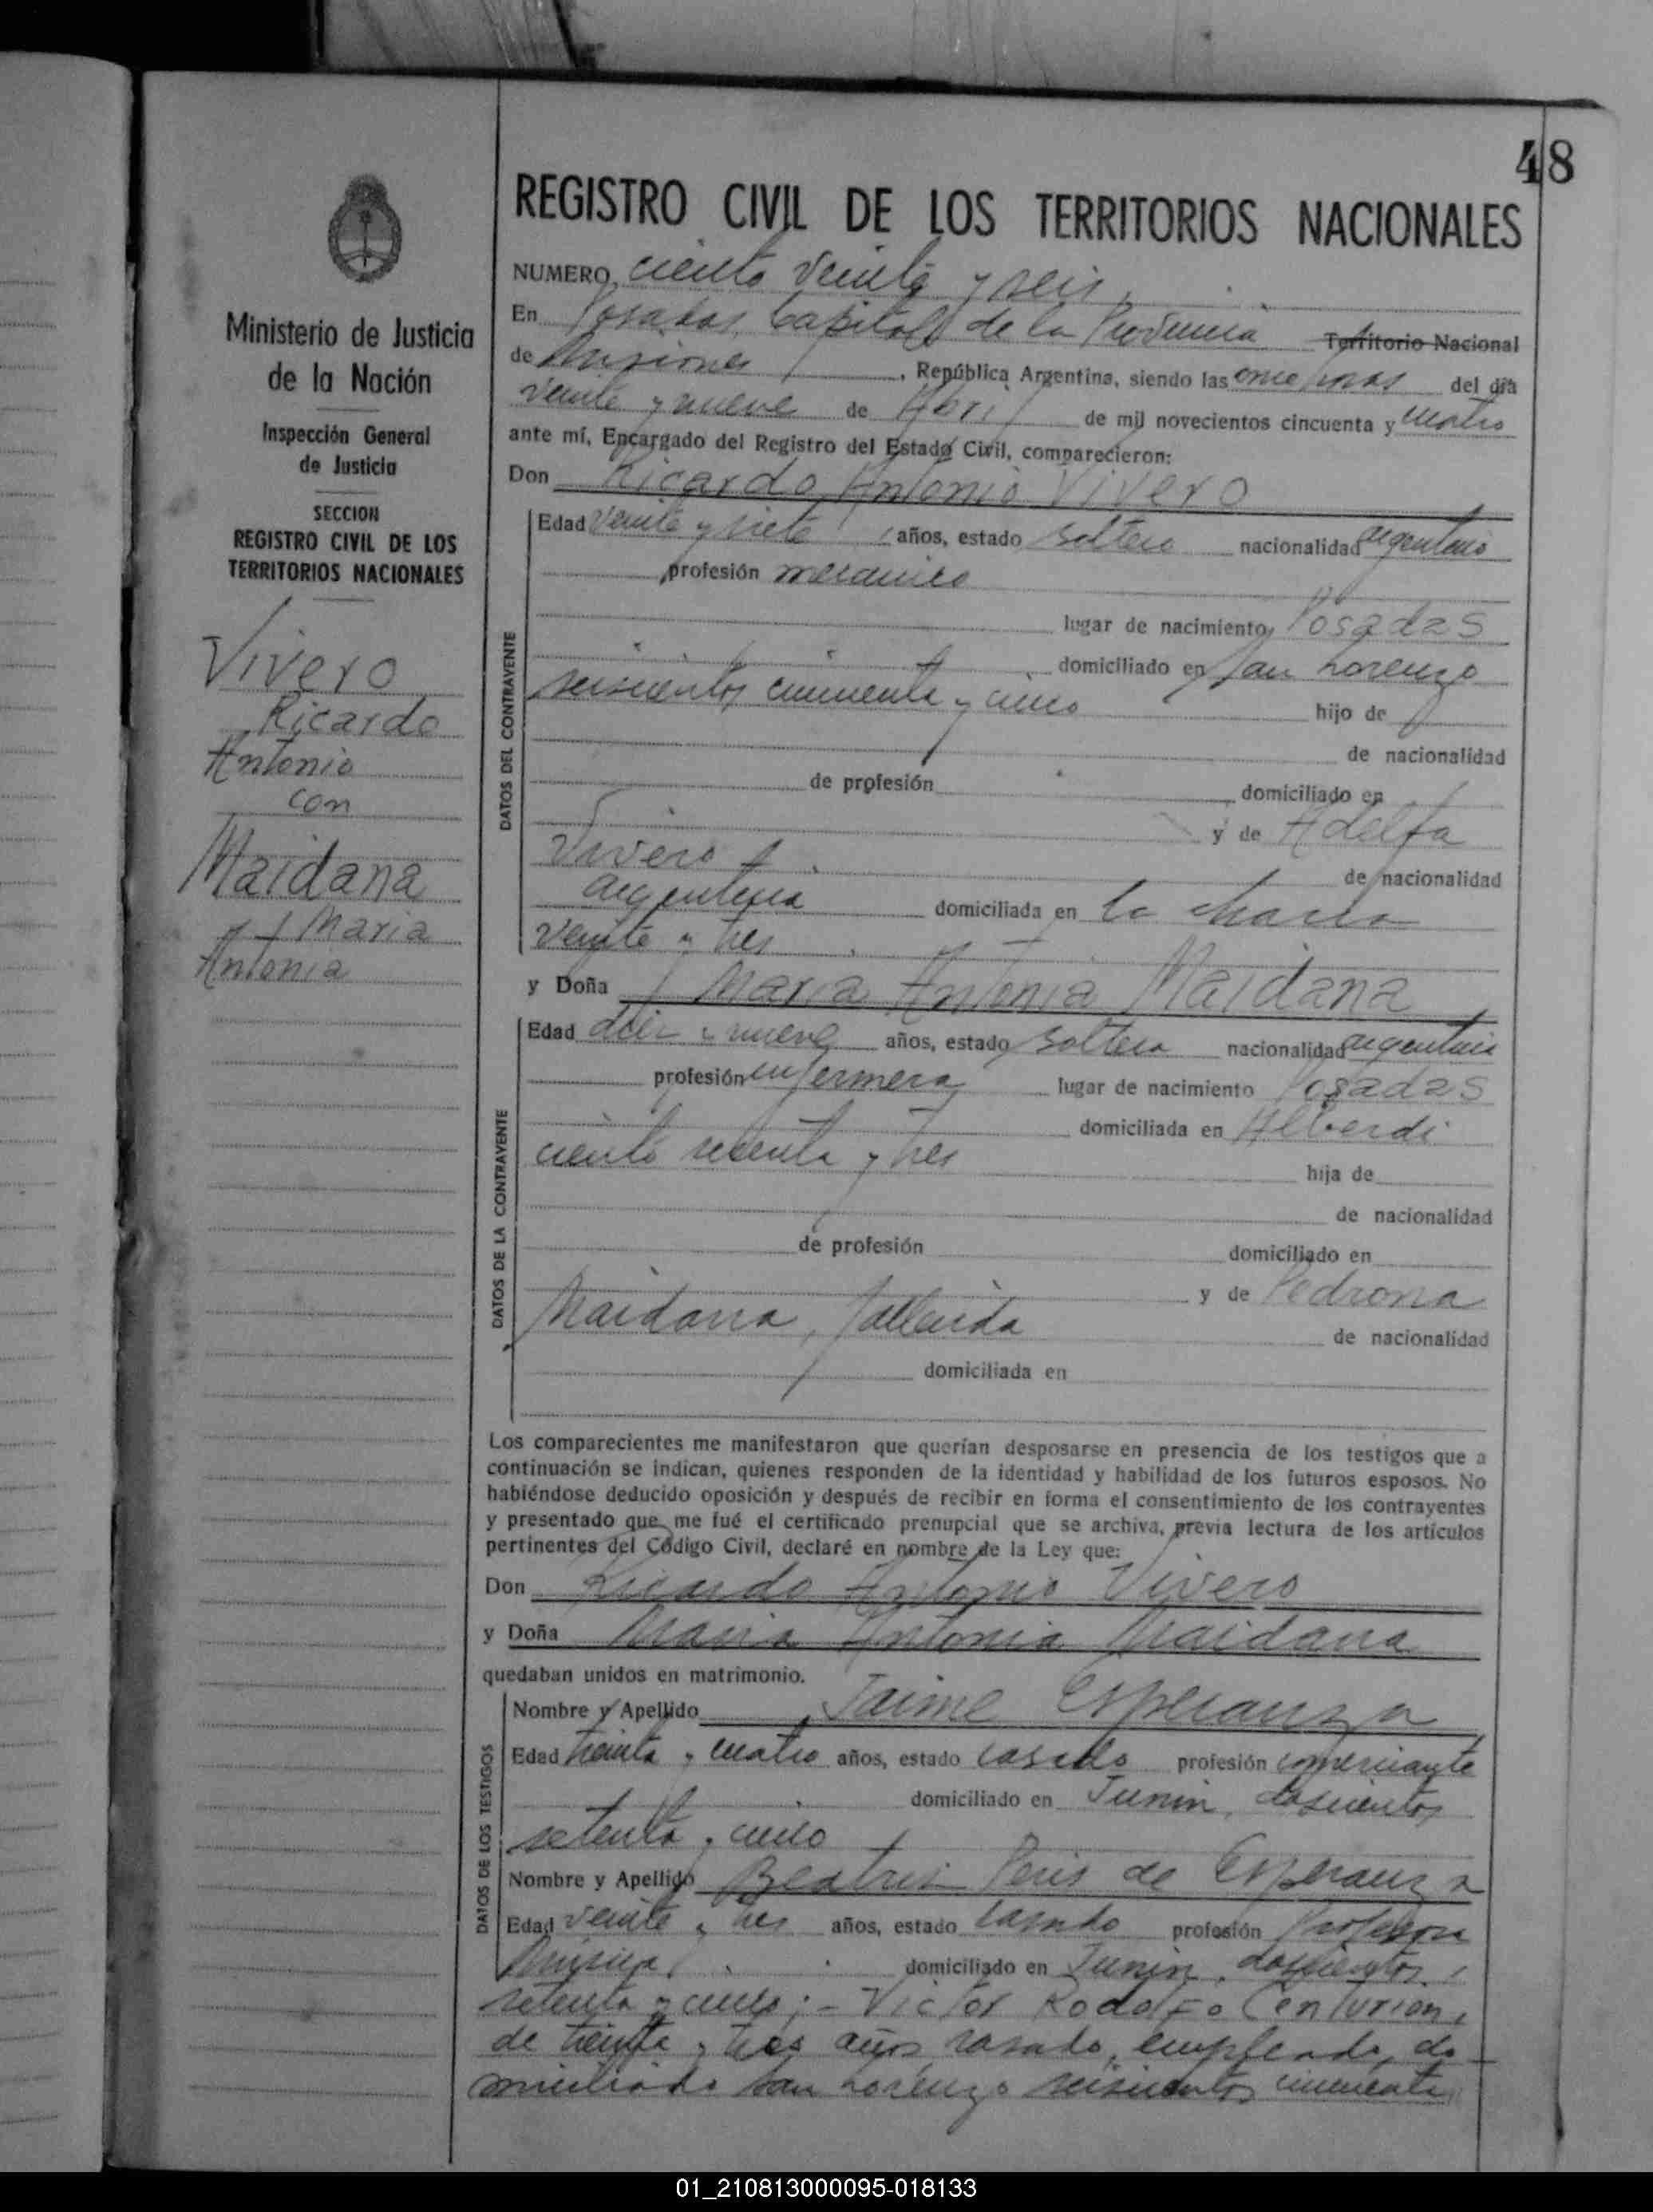 48
REGISTRO CIVIL DE LOS TERRITORIOS NACIONALES
Ministerio de Justicia
de la Nación
Inspección General
de Justicia
SECCION
REGISTRO CIVIL DE LOS
TERRITORIOS NACIONALES
Vivero
Ricardo
Antonio
con
Maidana
Maria
Antonia
NUMERO ciento veinte y seis
En Posadas, Capital de la Provincia Territorio Nacional
de Misiones, República Argentina, siendo las once horas del día
veinte y nueve de Abril de mil novecientos cincuenta y cuatro
ante mí, Encargado del Registro del Estado Civil, comparecieron:
Don Ricardo Antonio Vivero
DATOS DEL CONTRAYENTE
Edad veinte y siete años, estado soltero nacionalidad argentino
profesión mecanico
lugar de nacimiento Posadas
domiciliado en San Lorenzo
seiscientos cincuenta y cinco hijo de
de nacionalidad
de profesión domiciliado en
y de Adelfa
Vivero de nacionalidad
argentina domiciliada en la chacra
veinte y tres
y Doña Maria Antonia Maidana
DATOS DE LA CONTRAYENTE
Edad diez y nueve años, estado soltera nacionalidad argentina
profesión enfermera lugar de nacimiento Posadas
domiciliada en Alberdi
ciento setenta y tres hija de
de nacionalidad
de profesión domiciliado en
y de Pedrona
Maidana, fallecida de nacionalidad
domiciliada en
Los comparecientes me manifestaron que querían desposarse en presencia de los testigos que a
continuación se indican, quienes responden de la identidad y habilidad de los futuros esposos. No
habiéndose deducido oposición y después de recibir en forma el consentimiento de los contrayentes
y presentado que me fué el certificado prenupcial que se archiva, previa lectura de los artículos
pertinentes del Código Civil, declaré en nombre de la Ley que:
Don Ricardo Antonio Vivero
y Doña Maria Antonia Maidana
quedaban unidos en matrimonio.
DATOS DE LOS TESTIGOS
Nombre y Apellido Jaime Esperanza
Edad treinta y cuatro años, estado casado profesión comerciante
domiciliado en Junin, doscientos
setenta y cinco
Nombre y Apellido Beatris Peris de Esperanza
Edad veinte y tres años, estado casada profesión Profesora
Musica domiciliado en Junin, doscientos
setenta y cinco; - Victor Rodolfo Centurion,
de treinta y tres años casado, empleado, do
miciliado San Lorenzo seiscientos cincuenta
01_210813000095-018133